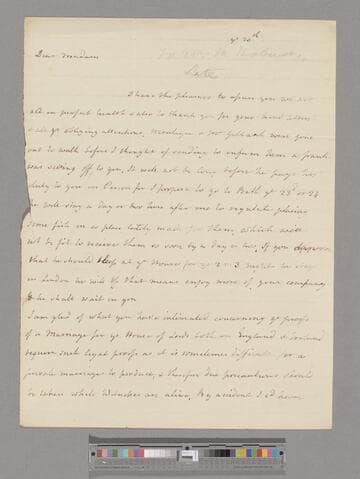 ye 20th
Dear madam
Late
I have the pleasure to assure you we are
all in perfect health & also to thank you for your kind letter
& all ye obliging attentions. Monsieur & were gone
out to walk before I thought of sending to inform them a frank
was going off to you, It will not be long before the page his
duty to you in Person for I propose to go to Bath ye 23d or 24
he will stay a day or two here after me to regulate placing
some fish in a place lately made for them, which will
not be fit to receive them so soon by a day or two, If you approve
that he should sleep at ye House for ye 2 or 3 nights he stays
in London he will by that means enjoy more of your company
& he shall wait on you
I am glad of what you have intimated concerning ye proofs
of a Marriage for ye House of Lords both in England & Ireland
require such legal proofs as it is sometimes difficult for a
private marriage to produce, & therefore due precautions should
be taken while Witnesses are alive, By accident I had